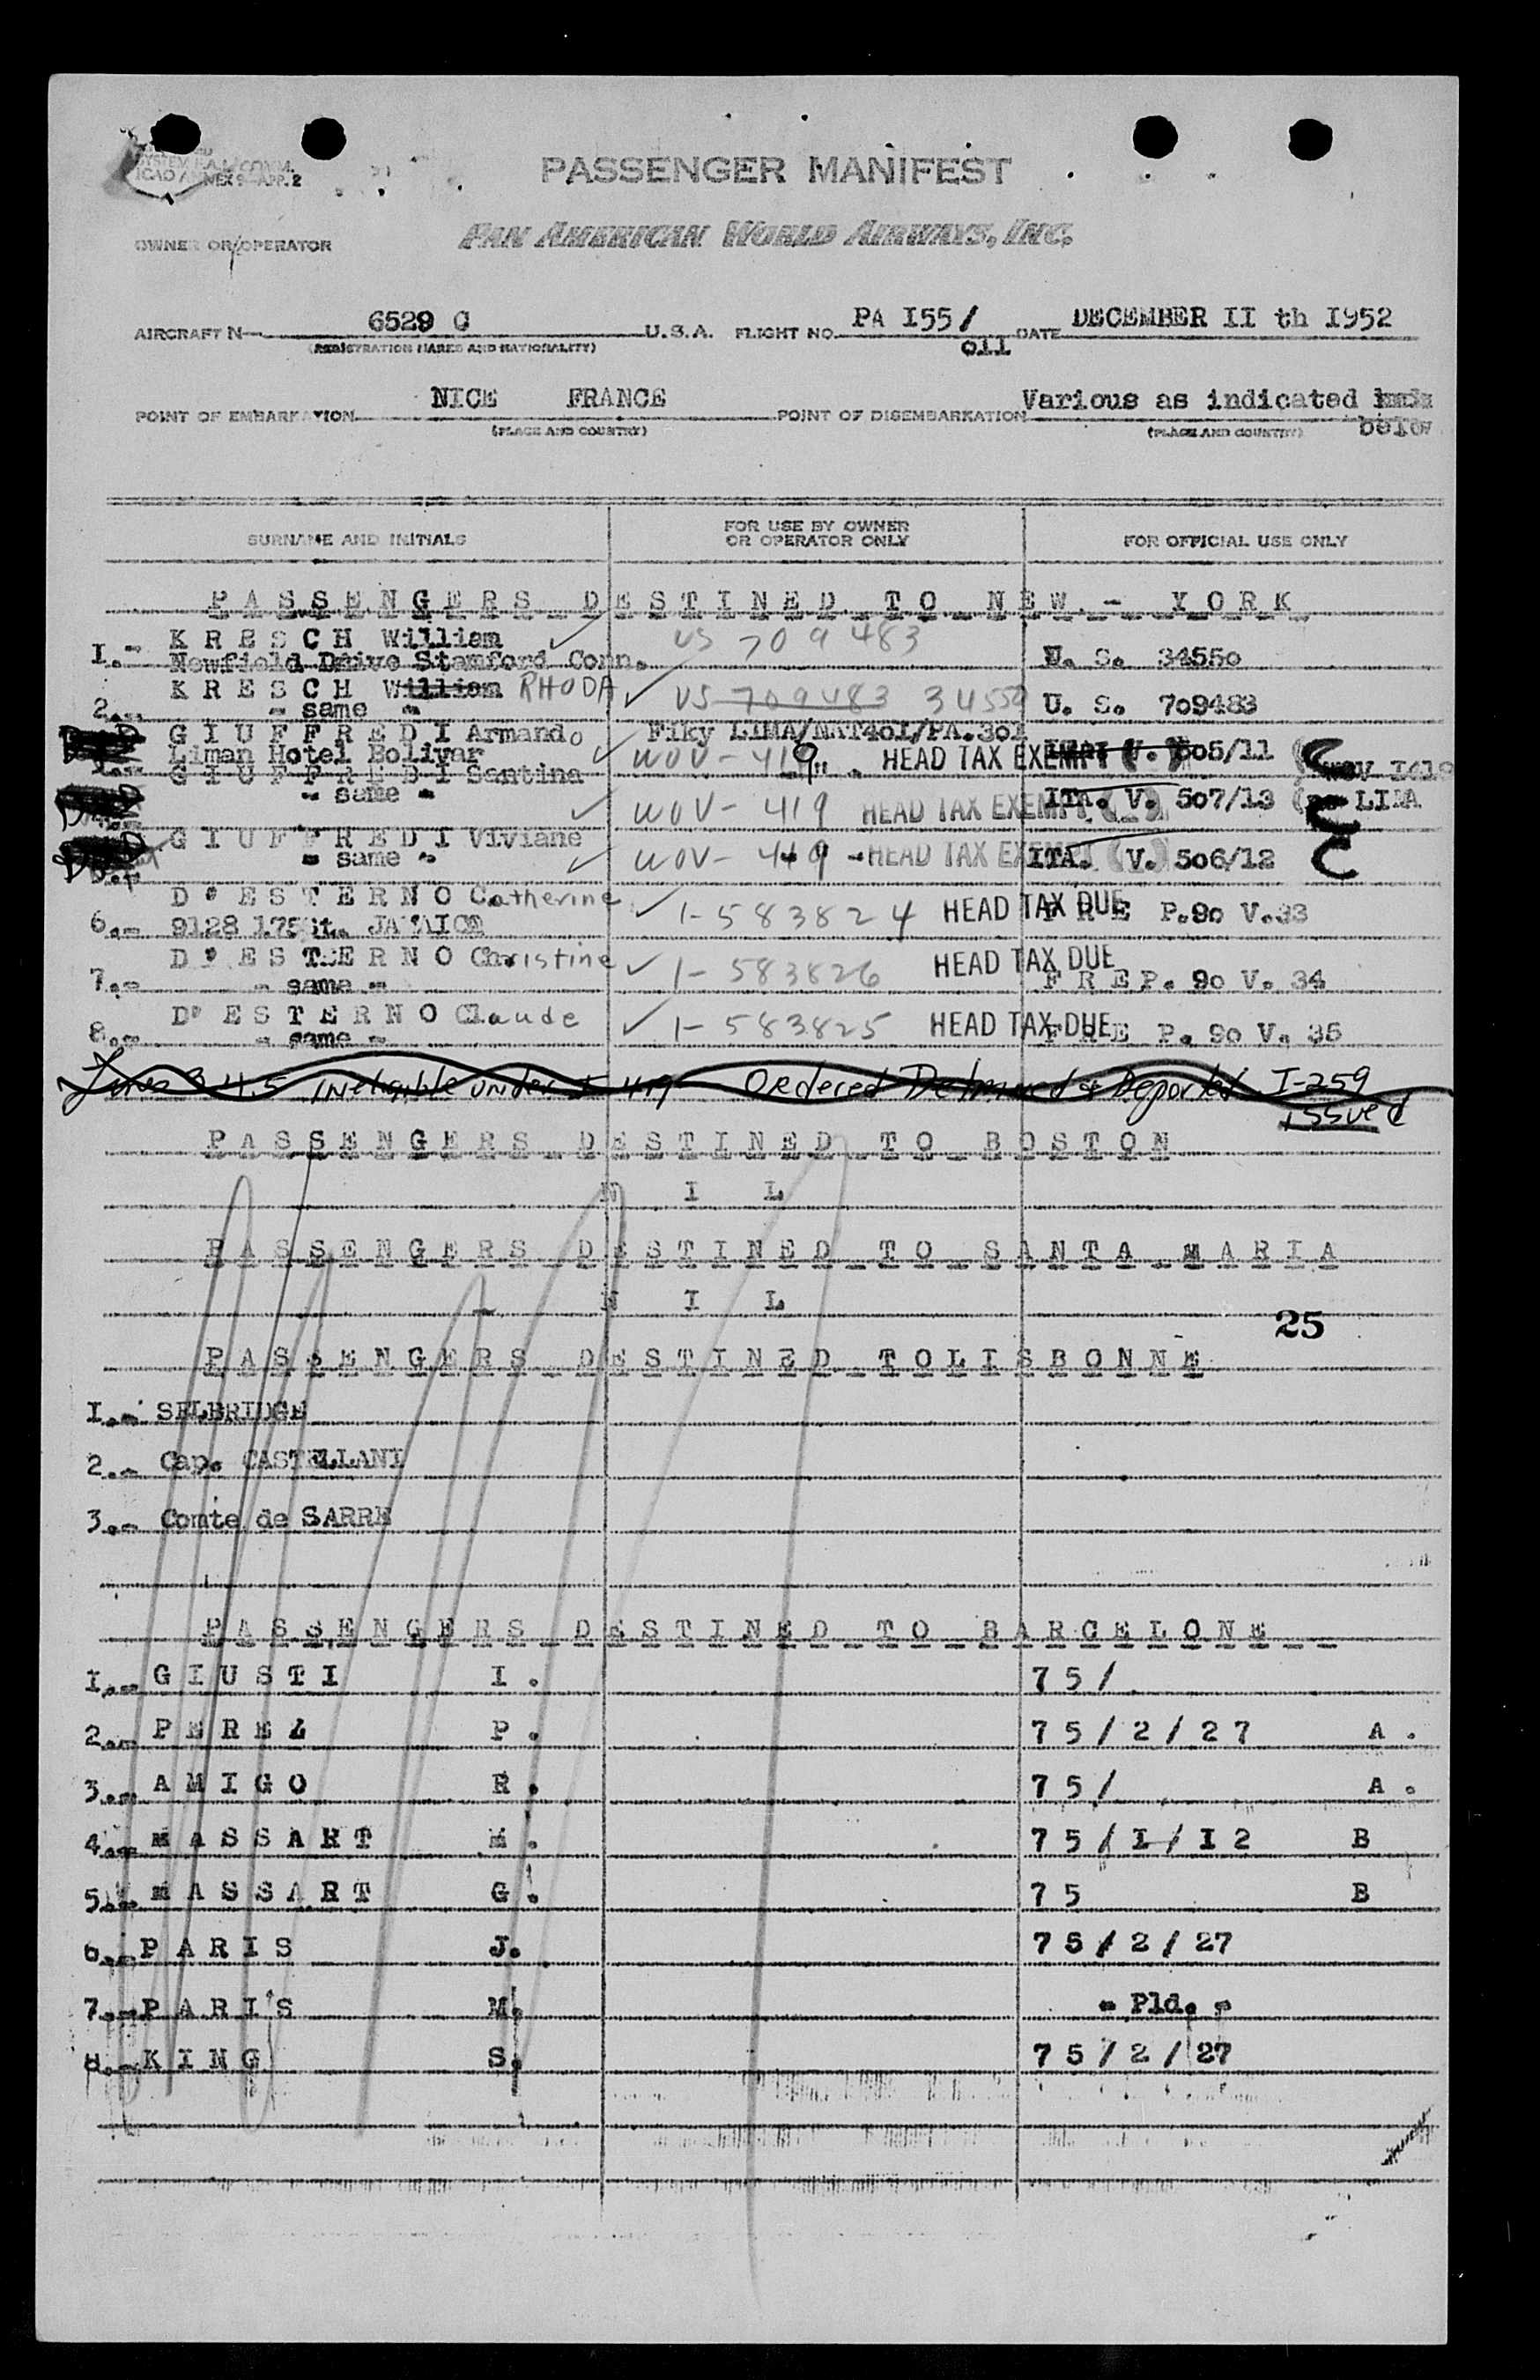 ICAO ANNEX 9-APP. 2
PASSENGER MANIFEST
OWNER OR OPERATOR PAN AMERICAN WORLD AIRWAYS, INC.
AIRCRAFT N 6529 C U.S.A. FLIGHT NO. PA I55/ DATE DECEMBER II th I952
(REGISTRATION MARKS AND NATIONALITY) oII
POINT OF EMBARKATION NICE FRANCE POINT OF DISEMBARKATION Various as indicated
(PLACE AND COUNTRY) (PLACE AND COUNTRY) below
SURNAME AND INITIALS FOR USE BY OWNER OR OPERATOR ONLY FOR OFFICIAL USE ONLY
PASSENGERS DESTINED TO NEW - YORK
I.- KRESCH William US 709483
Newfield Drive Stamford Conn. U. S. 3455o
2.- KRESCH William RHODA US 709483 34550 U. S. 7o9483
" same "
GIUFFREDI Armando Fiky LIMA/NAT4oI/PA.3oI
Liman Hotel Bolivar WOV - 419 HEAD TAX EXEMPT V. 5o5/11
GIUFFREDI Santina
" same " WOV - 419 HEAD TAX EXEMPT ITA. V. 5o7/13 LIMA
GIUFFREDI Viviane
" same " WOV - 419 HEAD TAX EXEMPT ITA. V. 5o6/12
D'ESTERNO Catherine 1-583824 HEAD TAX DUE F R E P.9o V.33
6.- 9128
7.- D'ESTERNO Christine 1-583826 HEAD TAX DUE F R E P. 9o V. 34
" same "
8.- D'ESTERNO Claude 1-583825 HEAD TAX DUE F R E P. 9o V. 35
" same "
Lines 3 4 5 Ineligible under Ordered Detained & Deported I-259
issued
PASSENGERS DESTINED TO BOSTON
N I L
PASSENGERS DESTINED TO SANTA MARIA
N I L
25
PASSENGERS DESTINED TOLISBONNE
I.- SELBRIDGE
2.- Cap. CASTELLANI
3.- Comte de SARRE
PASSENGERS DESTINED TO BARCELONE
I.- GIUSTI I. 75/
2.- PEREZ P. 75/2/27 A.
3.- AMIGO R. 75/ A.
4.- MASSART M. 75/I/I2 B
5.- MASSART G. 75 B
6.- PARIS J. 75/2/27
7.- PARIS M. " Pld. "
8.- KING S. 75/2/27